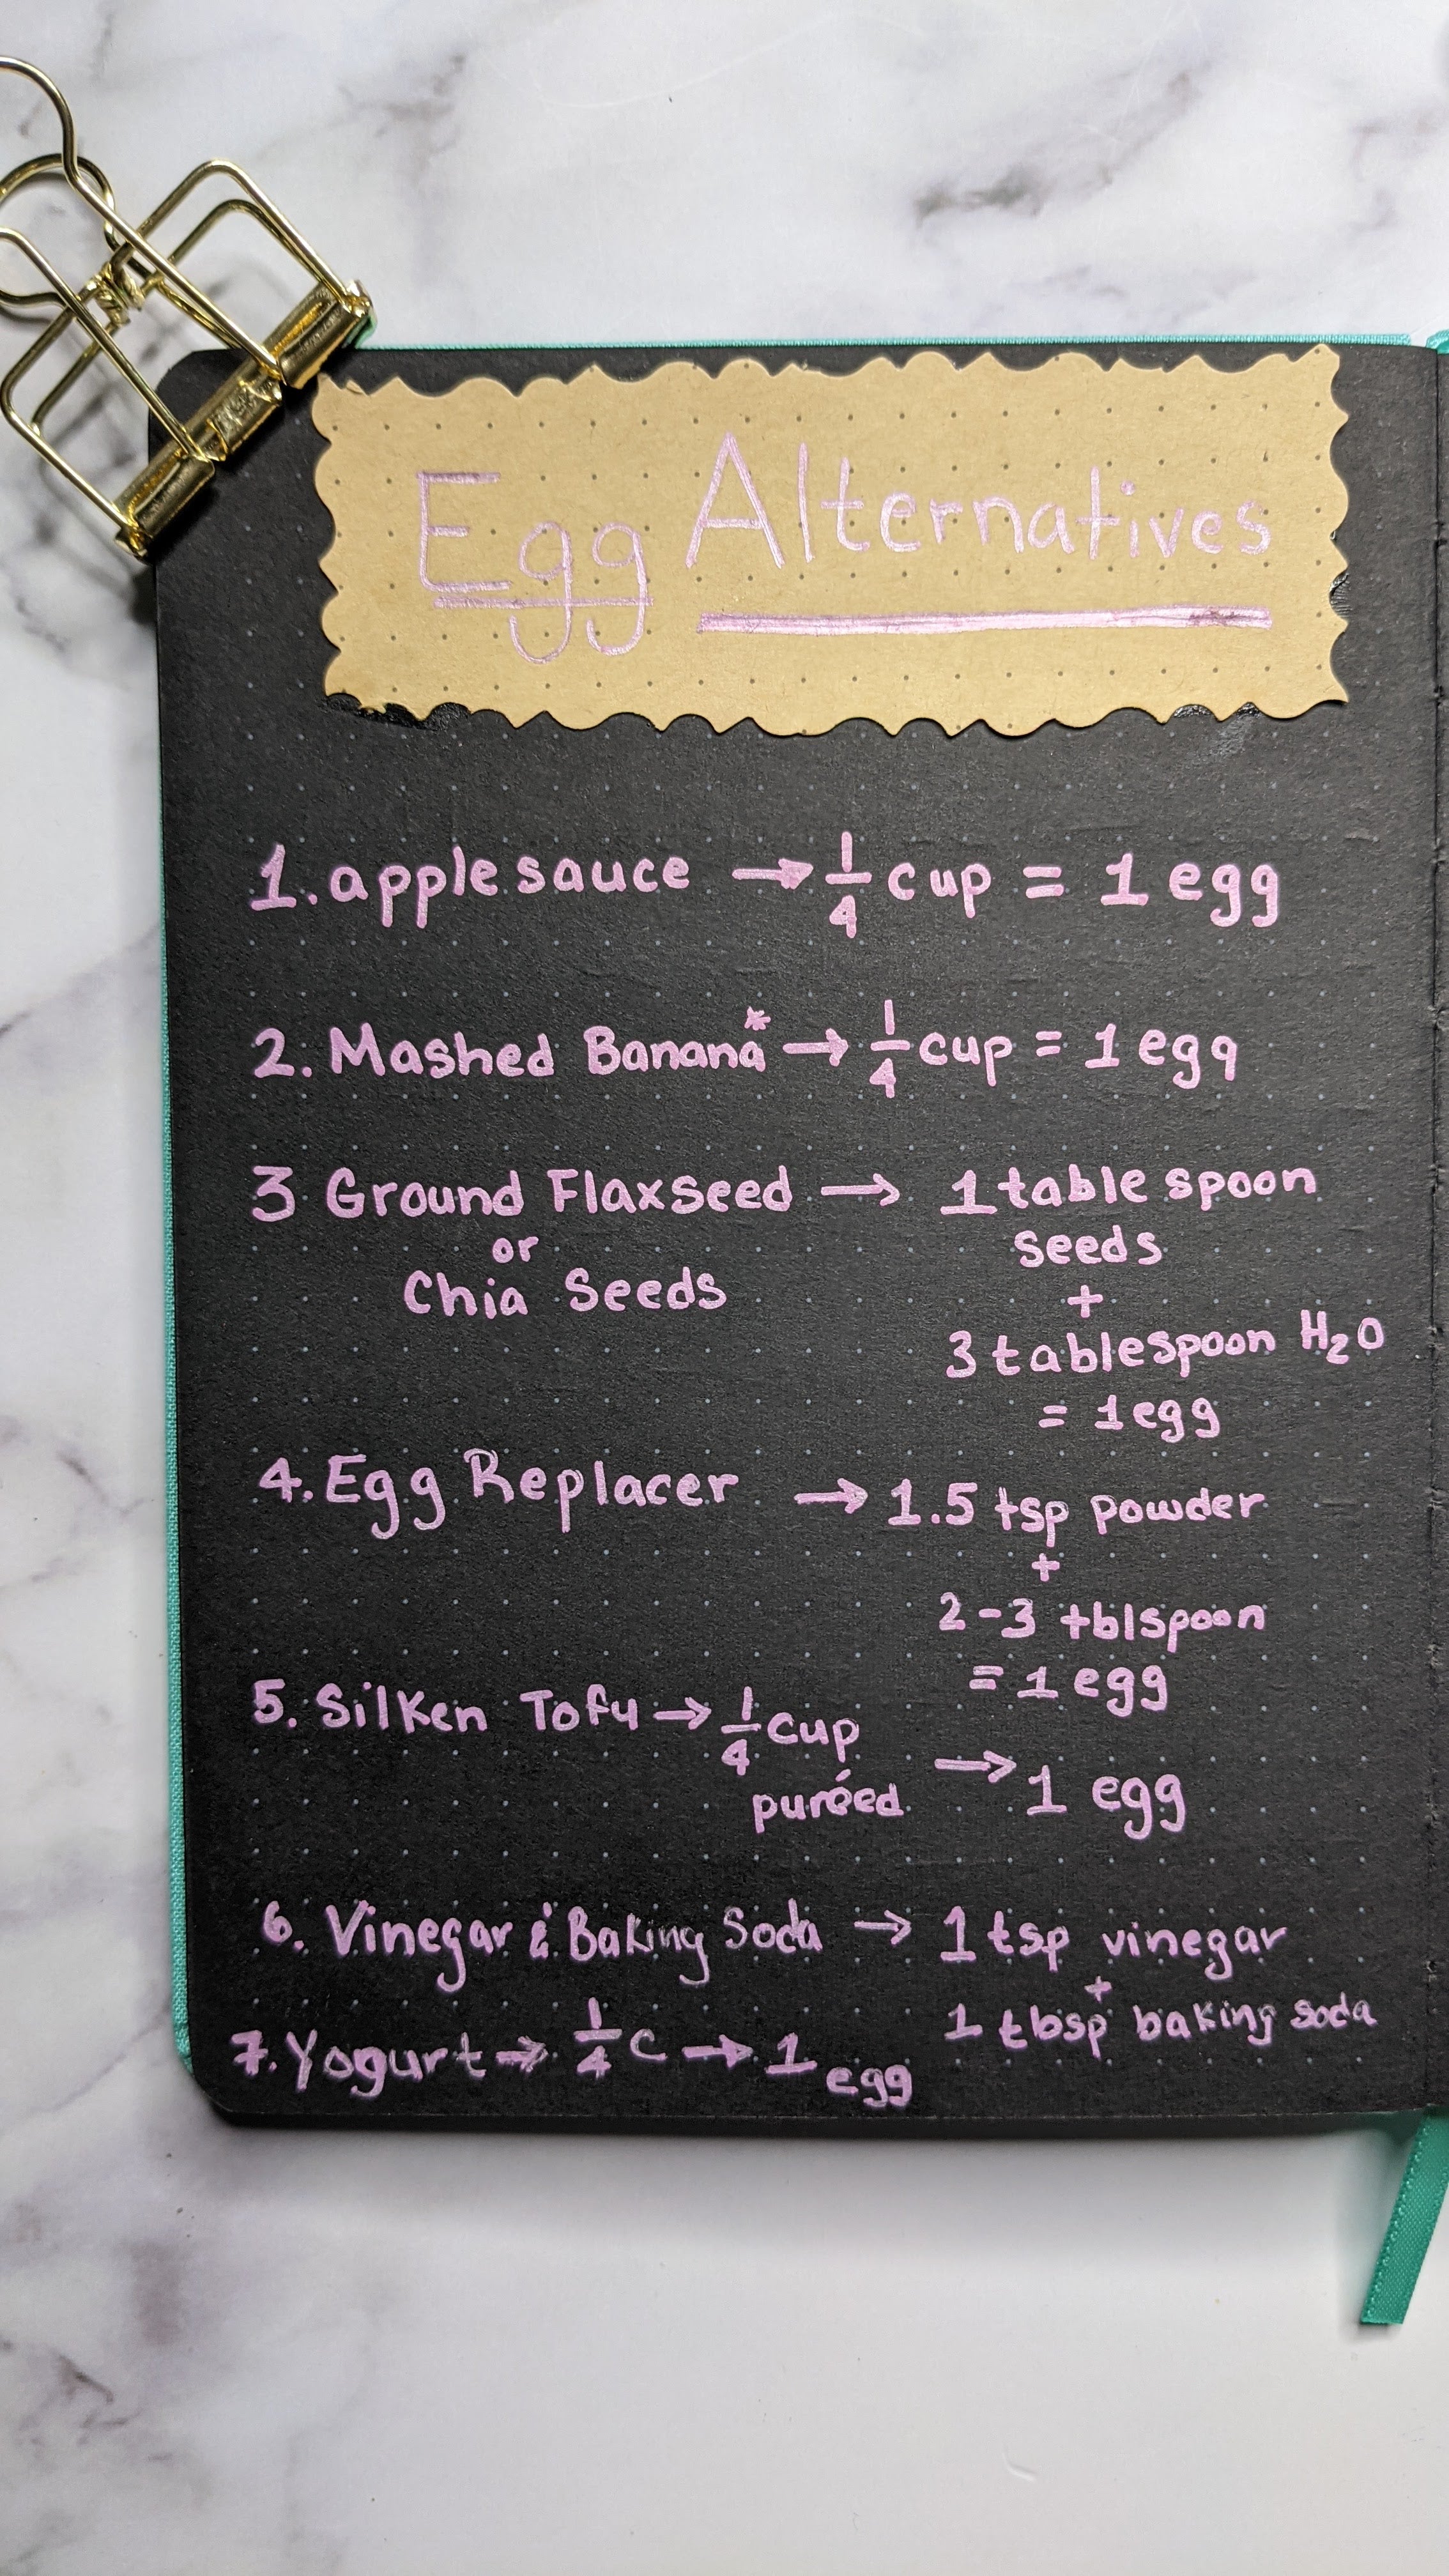 Egg Alternatives
1. applesauce → 1/4 cup = 1 egg
2. Mashed Banana* → 1/4 cup = 1 egg
3 Ground Flaxseed → 1 tablespoon
or
Chia Seeds
seeds
+
3 tablespoon H₂O
= 1 egg
4. Egg Replacer → 1.5 tsp powder
+
2-3 tblspoon
= 1 egg
5. Silken Tofu → 1/4 cup
puréed → 1 egg
6. Vinegar & Baking Soda → 1 tsp vinegar
+
1 tbsp baking soda
7. Yogurt → 1/4 c → 1 egg